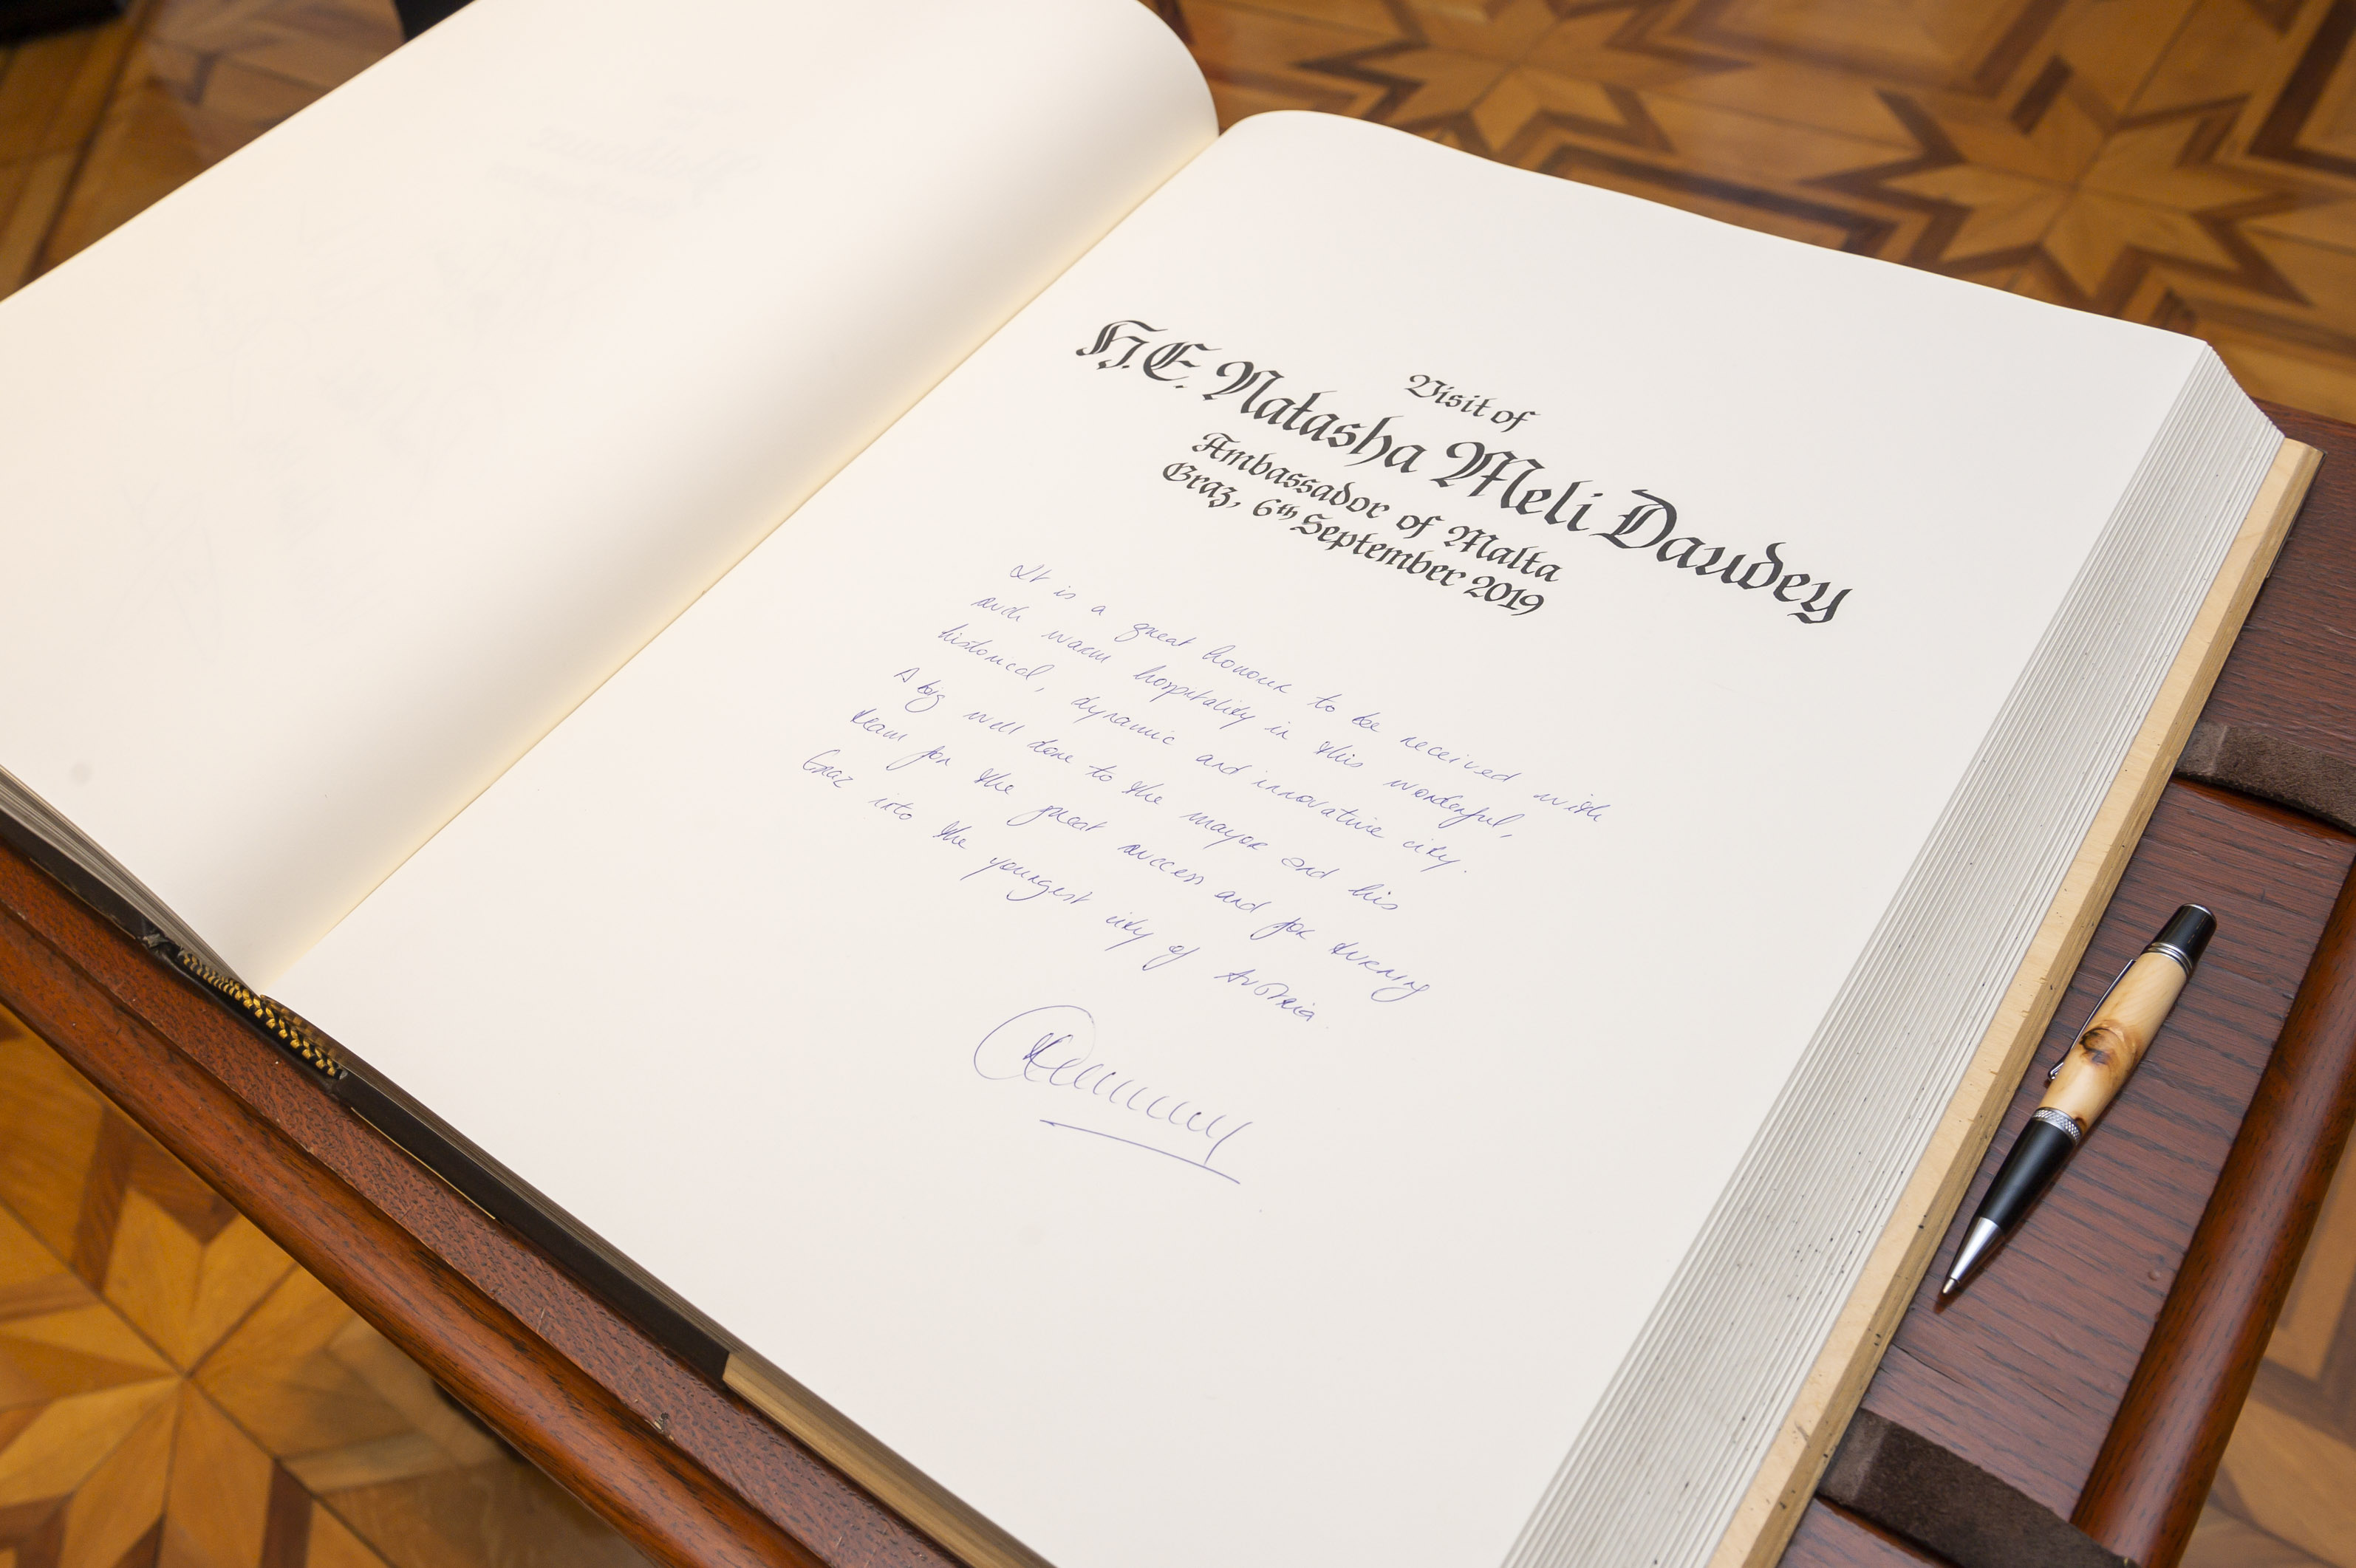 Visit of
H.E. Natasha Meli Daudey
Ambassador of Malta
Graz, 6th September 2019
It is a great honour to be received with
and warm hospitality in this wonderful,
historical, dynamic and innovative city.
A big well done to the mayor and his
team for the great success and for turning
Graz into the youngest city of Austria.